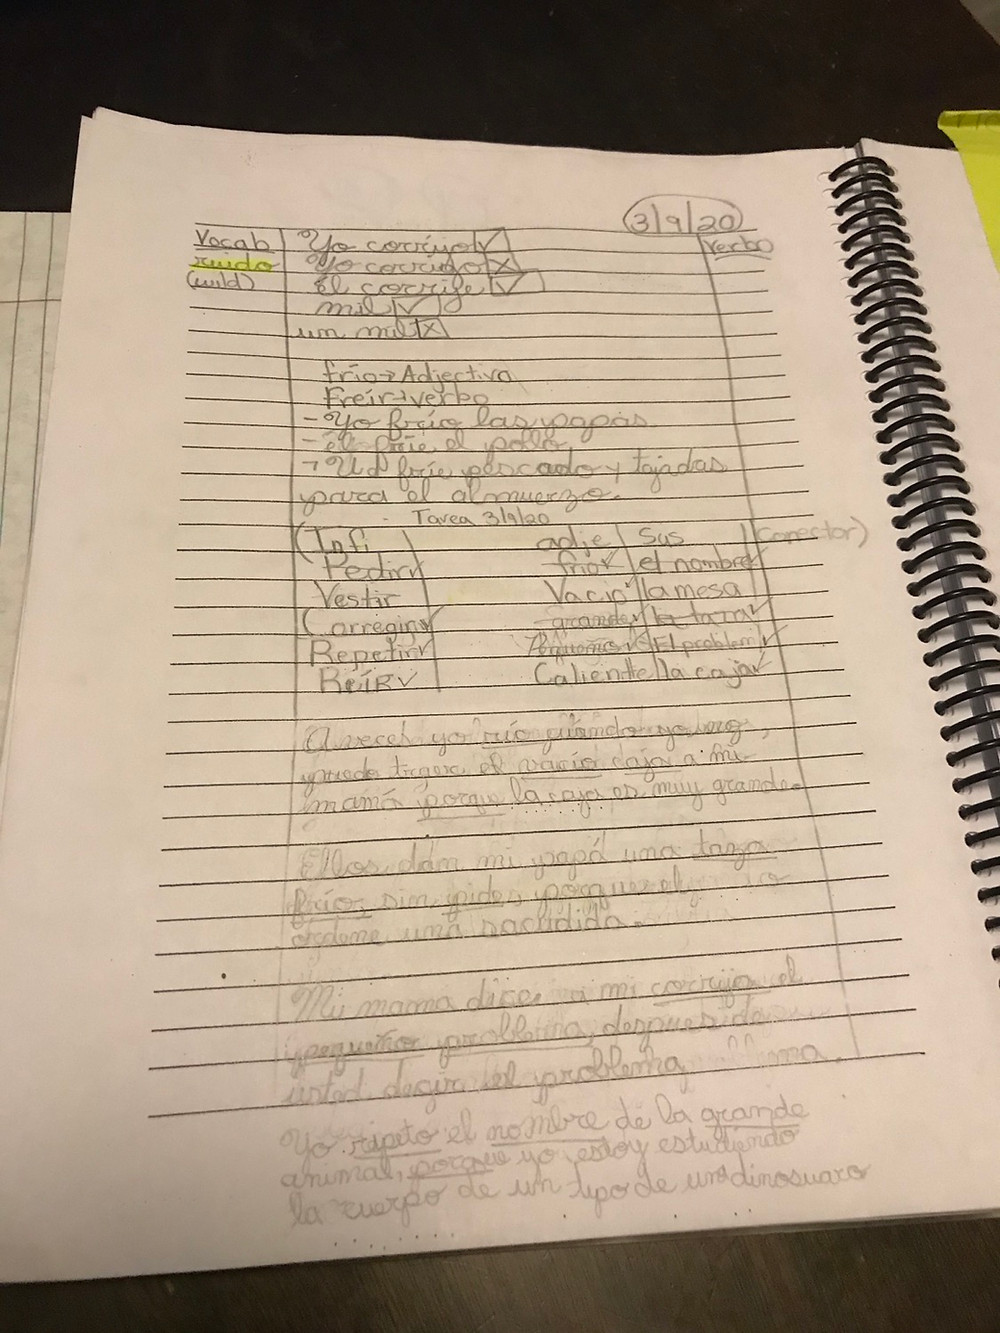 3/9/20
Vocab
Verbo
Yo corrijo ✓
ruido
Yo corrigo X
(wild)
él corrige ✓
mil ✓
un mil X
frío→Adjectivo
Freír→verbo
- Yo frío las papas.
- él fríe el pollo
- Ud fríe pescado y tajadas
para el almuerzo.
Tarea 3/9/20
(Infi adje | Sus | Conector)
Pedir ✓ frío ✓ | el nombre ✓
Vestir Vacío | la mesa
Corregir ✓ grande | la taza ✓
Repetir ✓ Pequeños | El problem ✓
ReíR ✓ Caliente | la caja ✓
A veces yo río cuando yo
puedo el vacío caja a mi
mamá porque la caja es muy grande.
Ellos dan mi papá una taza
frío, sin pides, porque el
una sacudida.
Mi mama dices a mi corrija el
pequeños problema, despues de
usted decir el problema
Yo repeto el nombre de la grande
animal, porque yo estoy estudiendo
la cuerpo de un tipo de un dinosuaro